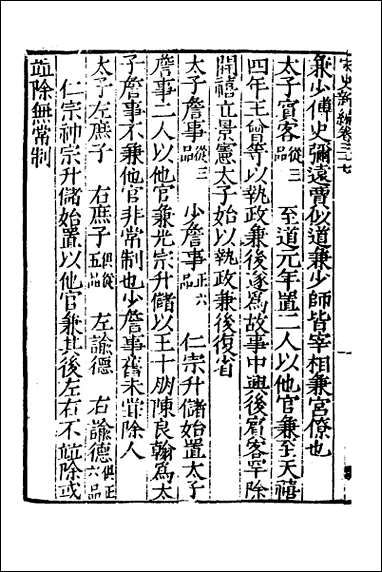 宋史新編卷三十七
兼少傅史彌遠賈似道兼少師皆宰相兼宮僚也
太子賓客從三品 至道元年置二人以他官兼至天禧
四年王曾等以執政兼後遂爲故事中興後賓客罕除
開禧立景憲太子始以執政兼後復省
太子詹事從三品 少詹事正六品 仁宗升儲始置太子
詹事二人以他官兼光宗升儲以王十朋陳良翰爲太
子詹事不兼他官非常制也少詹事舊未嘗除人
太子左庶子 右庶子俱從五品 左諭德 右諭德俱正六品
仁宗神宗升儲始置以他官兼其後左右不竝除或
竝除無常制